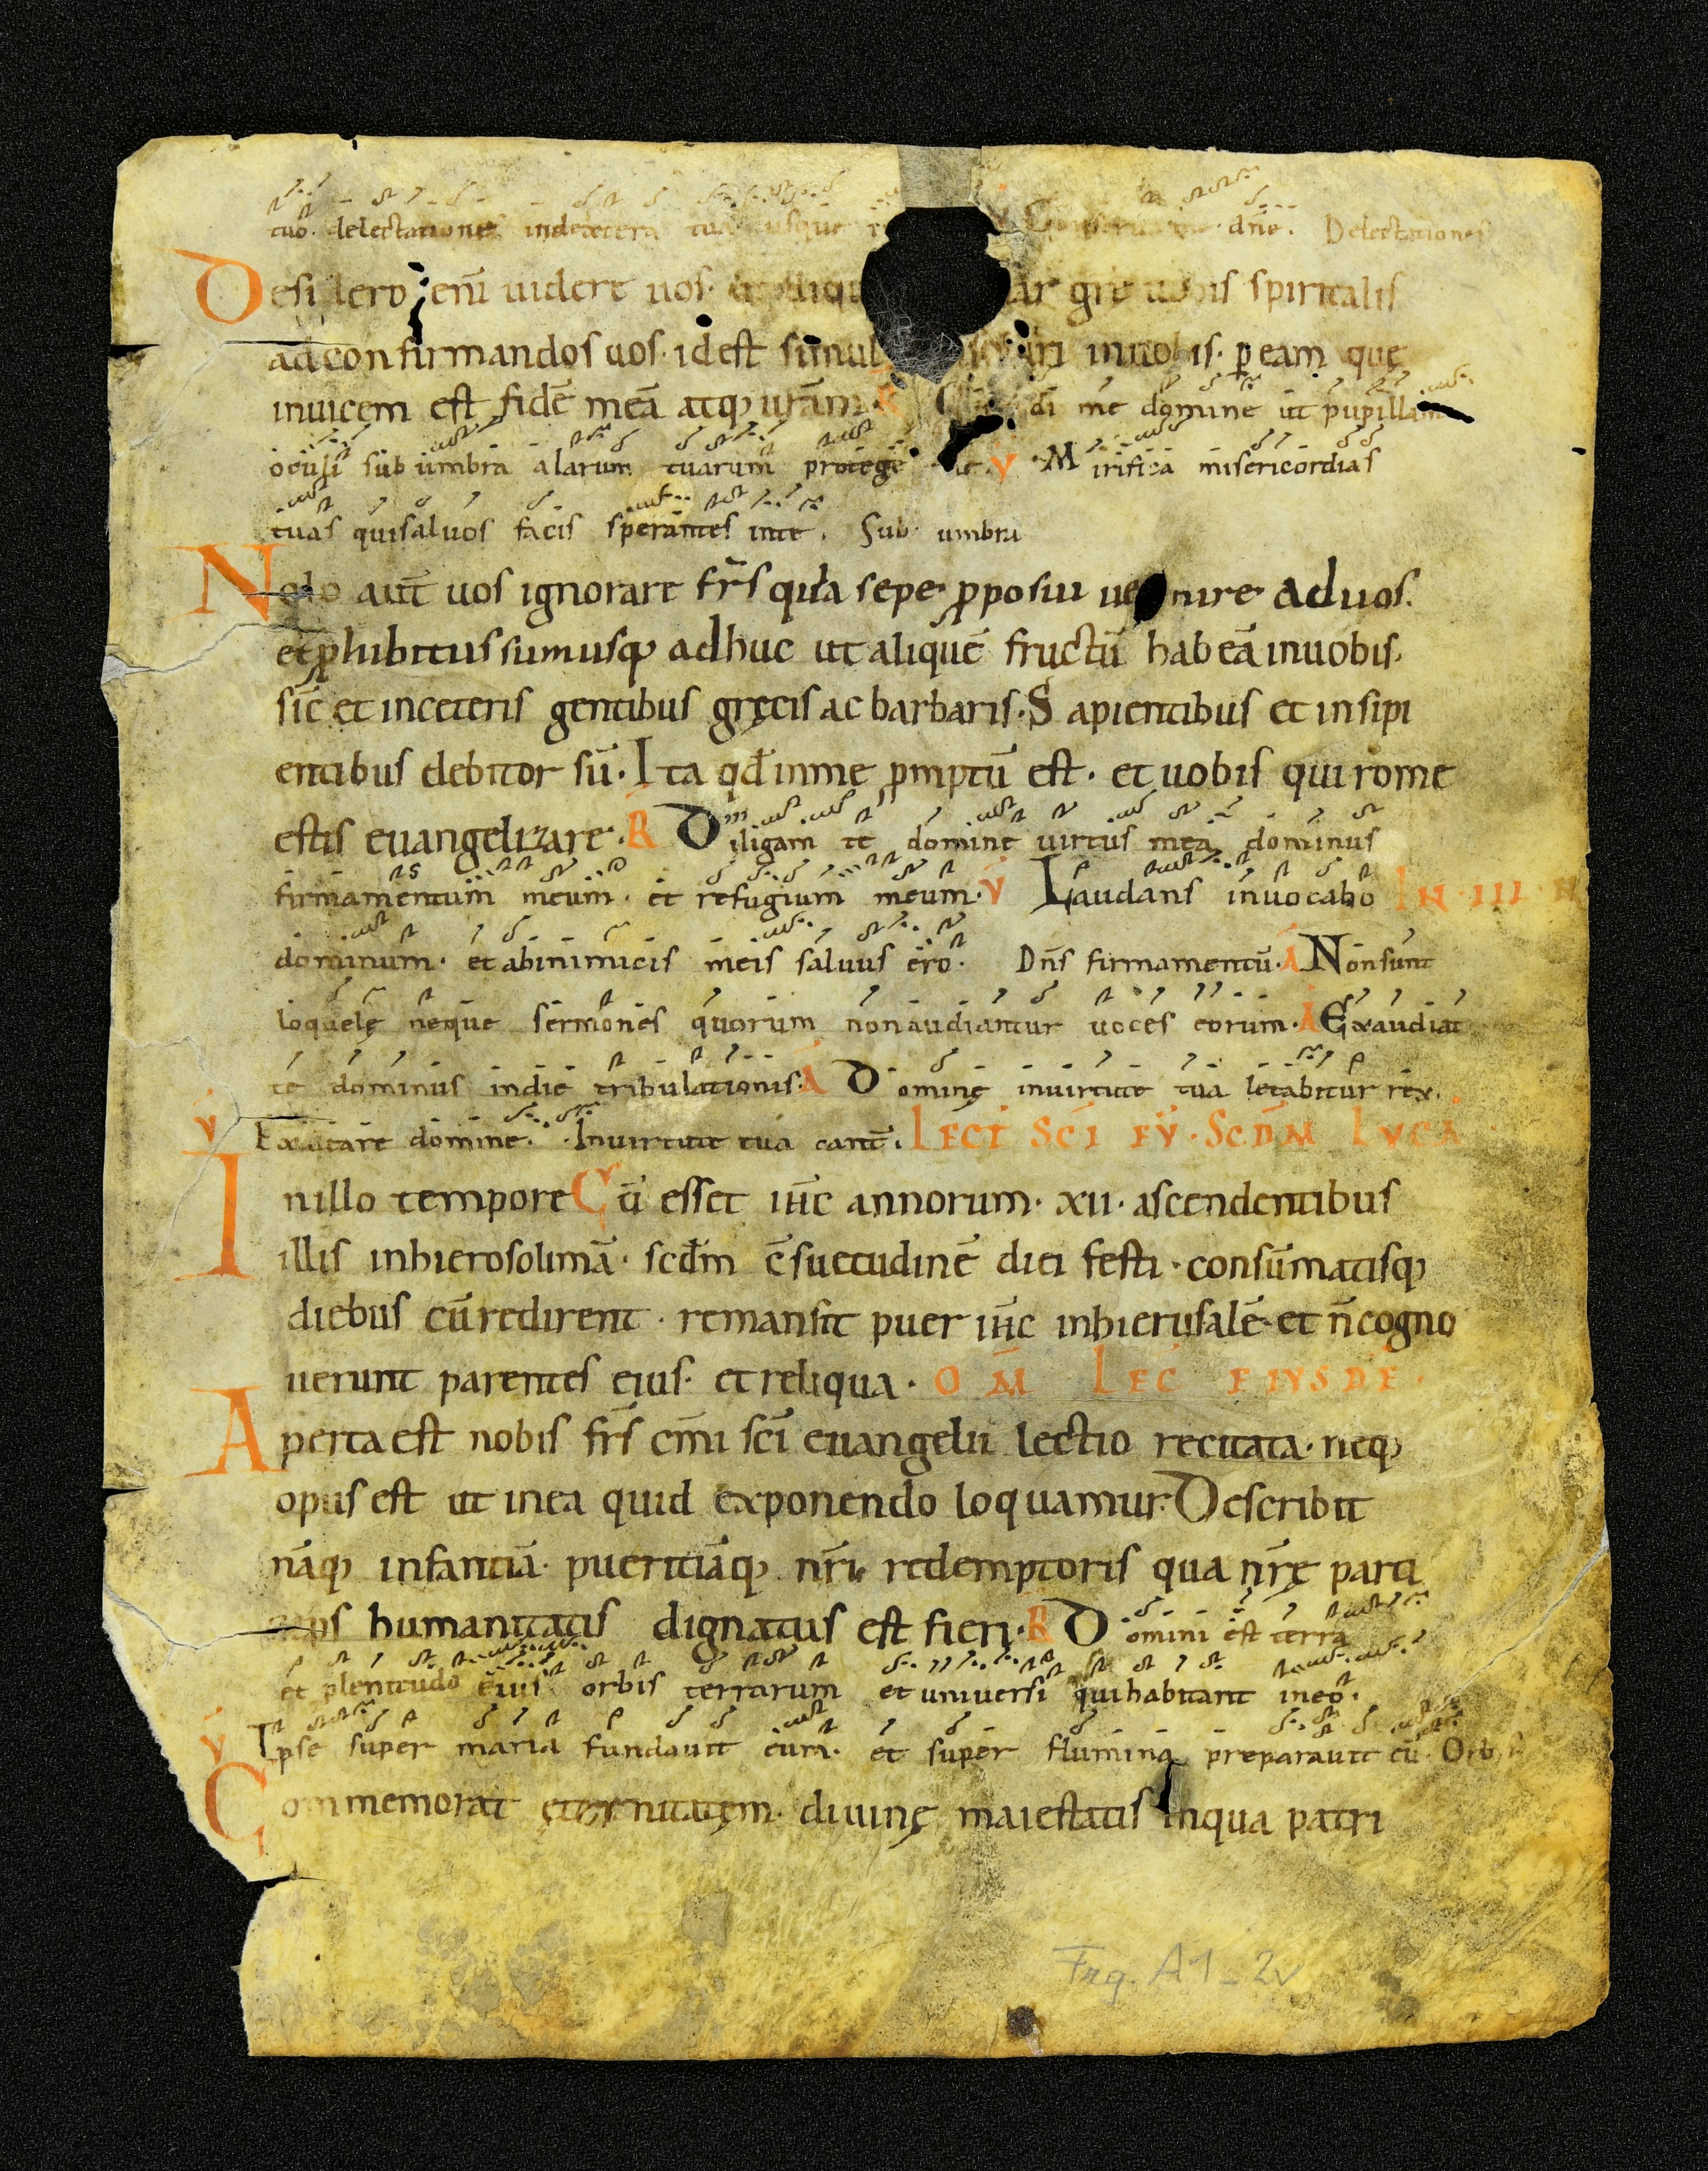 tuo. delectationes indextera tua usque V Conserua me. dn̄e. Delectationes
Desidero. enī uidere uos. ut aliquid gr̄e uobis spiritalis
adconfirmandos uos. idest simul inuobis. p̄ eam quę
inuicem est fidē meā atq; ur̄am. R̄ Custodi me domine ut pupillam
oculi sub umbra alarum tuarum protege me. V Mirifica misericordias
tuas quisaluos facis sperantes inte. Sub umbra
Nolo aut̄ uos ignorare fr̄s quia sepe p̱posui uenire aduos.
et p̱hibitus sumusq; adhuc ut aliquē fructū habeā inuobis.
sic̄ et inceteris gentibus gręcis ac barbaris. Sapientibus et insipi
entibus debitor sū. Ita qd̄ inme p̱mptū est. et uobis qui rome
estis euangelizare. R̄ Diligam te domine uirtus mea dominus
firmamentum meum. et refugium meum. V̄ Laudans inuocabo IN · III · N
dominum. et abinimicis meis saluus ero. Dn̄s firmamentū. Ā Nonsunt
loquelę neque sermones quorum nonaudiantur uoces eorum. Ā Exaudiat
te dominus indie tribulationis. Ā Dominę inuirtute tua letabitur rex.
V̄ Exaltare domine. Inuirtute tua cant̄. LECT SCI EV · SCDM LVCA
Inillo tempore Cū esset ih̄c annorum. xii. ascendentibus
illis inhierosolimā. scd̄m c̄suetudinē diei festi. consūmatisq;
diebus cū redirent. remansit puer ih̄c inhierusalē. et n̄ cogno
uerunt parentes eius. et reliqua. OM LEC EIVSDE.
Aperta est nobis fr̄s cm̄i sc̄i euangelii lectio recitata. neq;
opus est ut inea quid exponendo loquamur. Describit
nāq; infantiā. pueritiāq; nr̄i redemptoris qua nr̄ę parti
ceps humanitatis dignatus est fieri. R̄ Domini est terra
et plenitudo eius orbis terrarum et uniuersi quihabitant ineo.
V̄ Ipse super maria fundauit eum. et super flumina preparauit eū. Orbis
Commemorat ęternitatem. diuinę maiestatis inqua patri
Frg. A1_2v